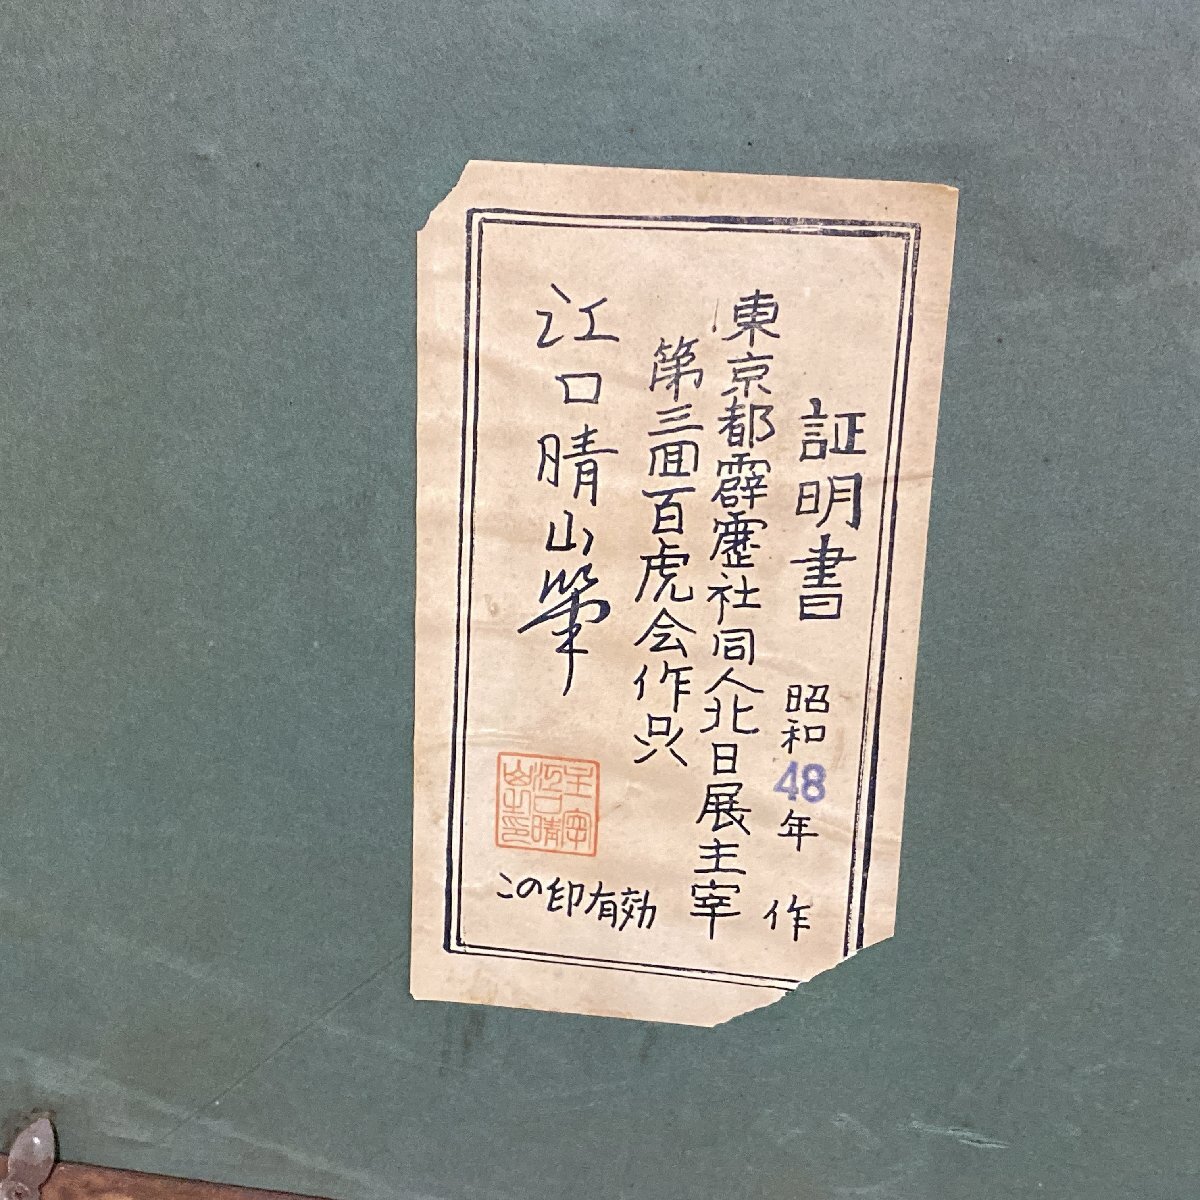 証明書
昭和48年 作
東京都霹靂社同人北日展主宰
第三回百虎会作品
江口晴山筆
主宰江口晴山之印
この印有効